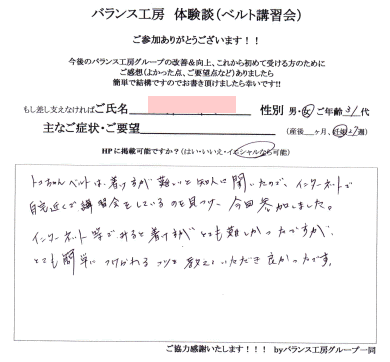 バランス工房 体験談(ベルト講習会)
ご参加ありがとうございます!!
今後のバランス工房グループの改善&向上、これから初めて受ける方のために
ご感想(よかった点、ご要望点など)ありましたら
簡単で結構ですのでお書き頂けましたら幸いです!!
もし差し支えなければご氏名 性別 男・女 ご年齢 31 代
主なご症状・ご要望 (産後 ヶ月、妊娠 週)
HPに掲載可能ですか?(はい・いいえ・イニシャルなら可能)
トコちゃんベルトは、着け方が難しいと知人に聞いたので、インターネットで
自宅近くで講習会をしているのを見つけ、今回参加しました。
インターネット等でみると着け方がとても難しかったですが、
とても簡単につけられるコツを教えていただき良かったです。
ご協力感謝いたします!!! byバランス工房グループ一同